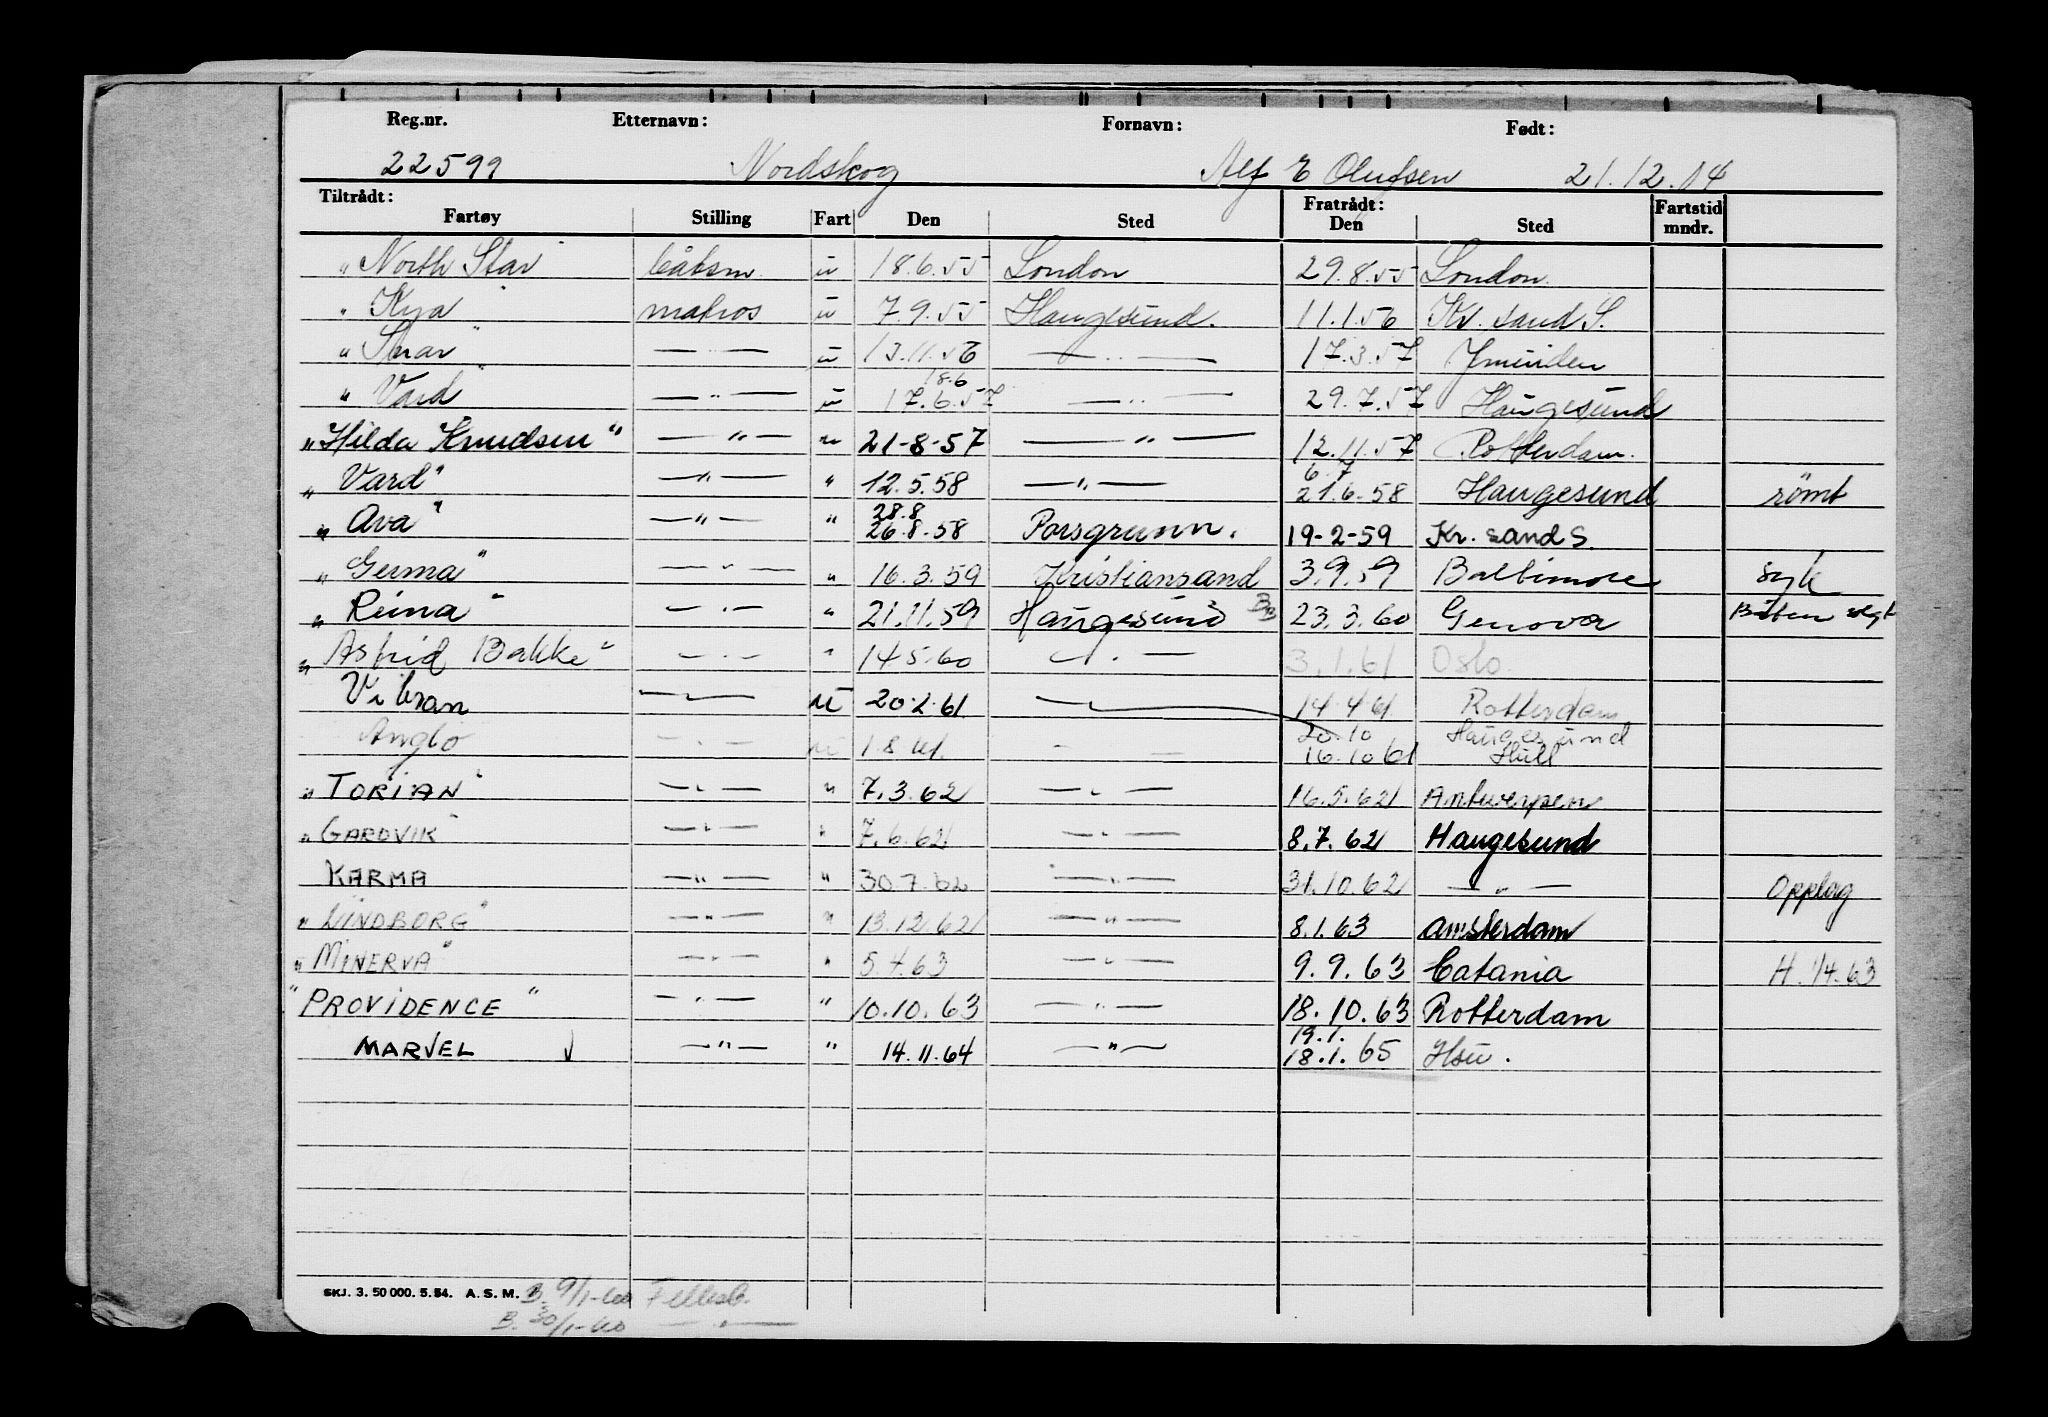 Reg.nr. Etternavn: Fornavn: Født:
22599 Nordskog Alf E Olufsen 21.12.14
Tiltrådt: Fratrådt:
Fartøy Stilling Fart Den Sted Den Sted Fartstid mndr.
"North Star" båtsm u 18.6.55 London 29.8.55 London
"Kya" matros u 7.9.55 Haugesund. 11.1.56 Kr. sand S.
"Snar" — " — u 13.11.56 — " — 17.3.57 Ymuiden
18.6
"Vard" — " — u 17.6.57 — " — 29.7.57 Haugesund
"Hilda Knudsen" — " — " 21-8-57 — " — 12.11.57 Rotterdam.
6.7
"Vard" — " — " 12.5.58 — " — 21.6.58 Haugesund rømt
28.8
"Ava" — " — " 26.8.58 Porsgrunn. 19-2-59 Kr. sand S.
"Germa" — " — " 16.3.59 Kristiansand 3.9.59 Baltimore syk
"Reina" — " — " 21.11.59 Haugesund 23.3.60 Genova Båten solgt
"Astrid Bakke" — " — " 14.5.60 — " — 3.1.61 Oslo.
Vibran — " — u 20.2.61 — " — 14.4.61 Rotterdam
20.10 Haugesund
Anglo — " — u 1.8.61 — " — 16.10.61 Hull
"TORIAN" — " — " 7.3.62 — " — 16.5.62 Antwerpen
"GARDVIK" — " — " 7.6.62 — " — 8.7.62 Haugesund
KARMA — " — " 30.7.62 — " — 31.10.62 — " — Opplag
"LINDBORG" — " — " 13.12.62 — " — 8.1.63 Amsterdam
"MINERVA" — " — " 5.4.63 — " — 9.9.63 Catania H. 1/4.63
"PROVIDENCE" — " — " 10.10.63 — " — 18.10.63 Rotterdam
19.1.
MARVEL — " — " 14.11.64 — " — 18.1.65 Hsu.
SKJ. 3. 50 000. 5. 54. A. S. M. B. 9/1-60 Fellesb.
B. 30/1-60 — " —